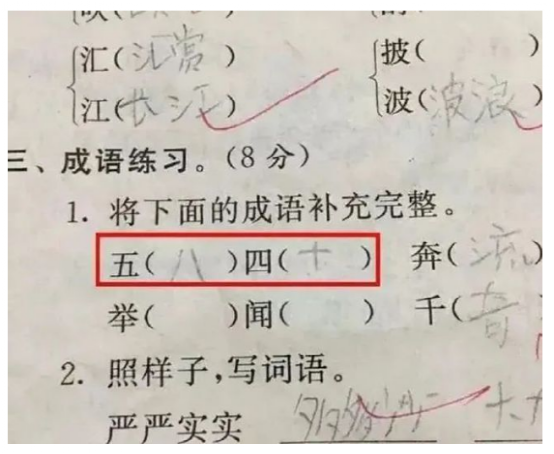 汇(汇赏) 披( )
江(长江) 波(波浪)
三、成语练习。(8分)
1. 将下面的成语补充完整。
五(八)四(十) 奔(流
举( )闻( ) 千(音
2. 照样子,写词语。
严严实实 多多少少 大大